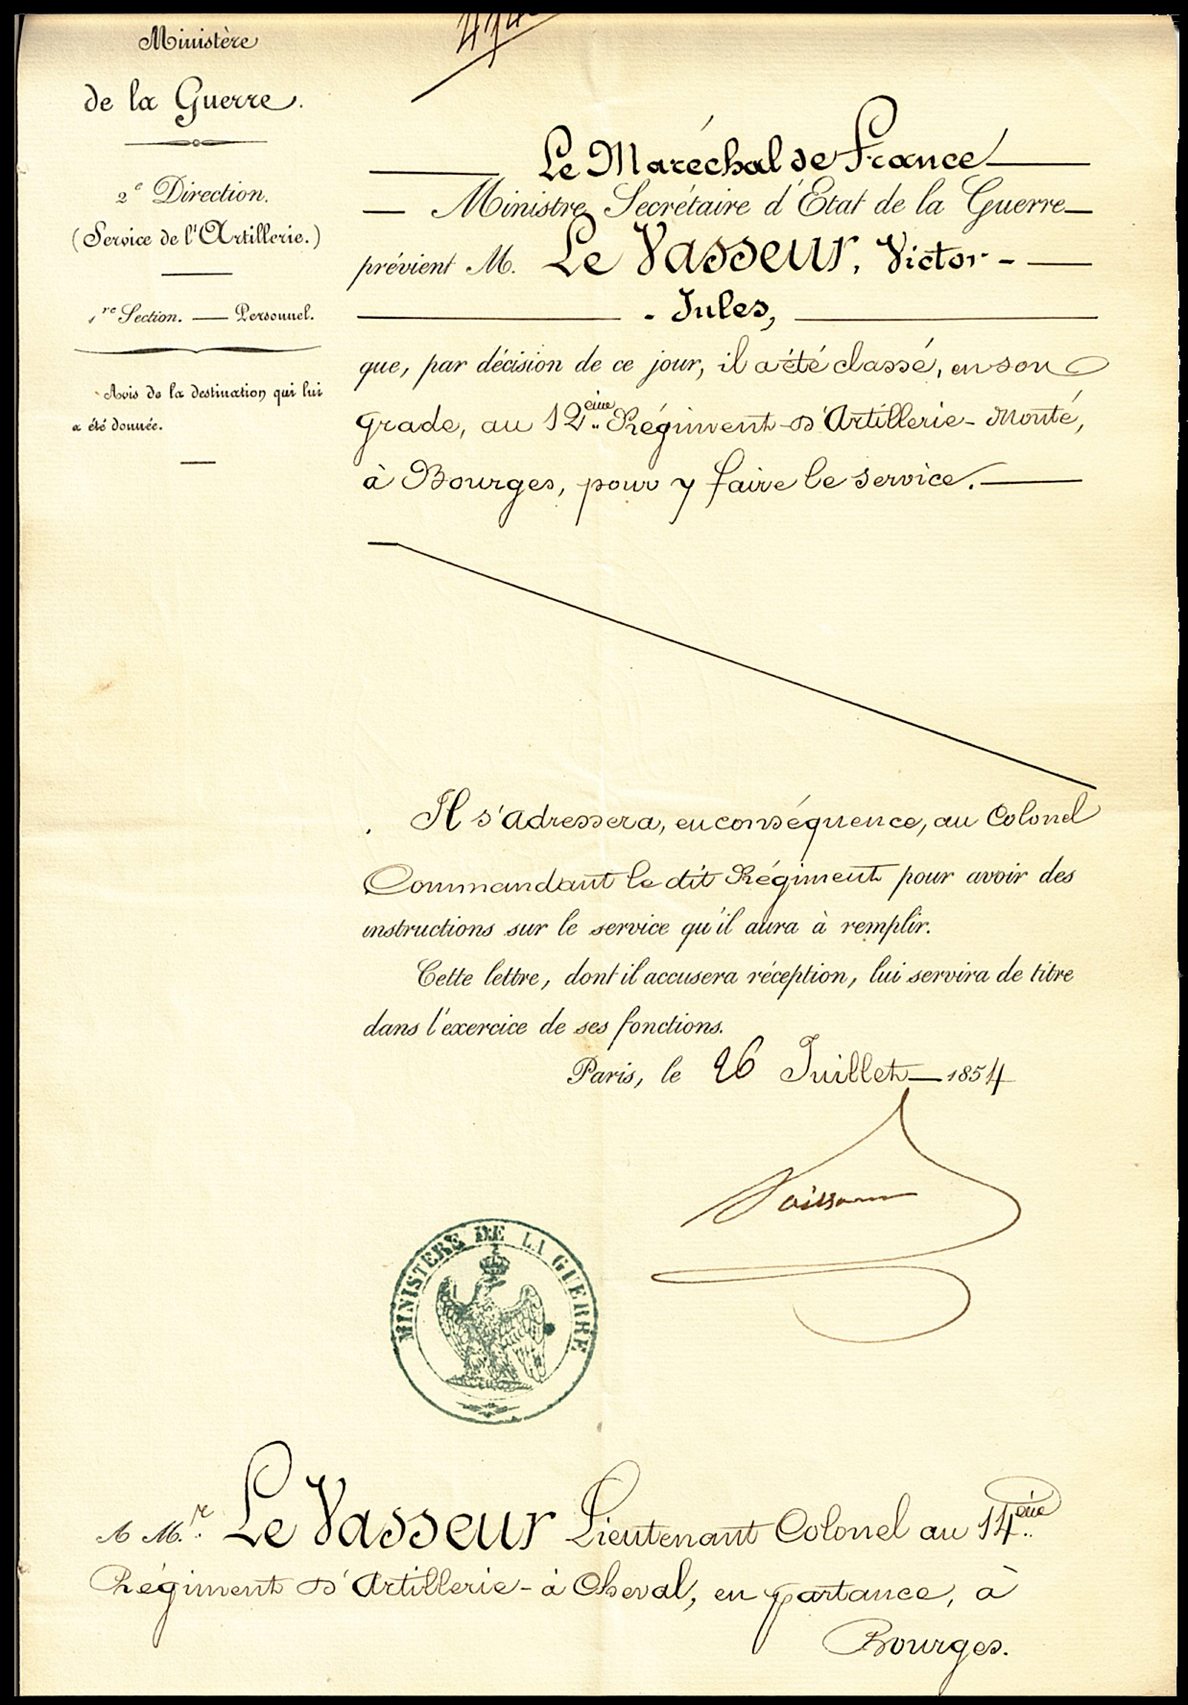 Ministère
de la Guerre.
2e Direction.
(Service de l'Artillerie.)
1re Section. — Personnel.
Avis de la destination qui lui
a été donnée.
Le Maréchal de France
Ministre Secrétaire d'État de la Guerre
prévient M. Le Vasseur, Victor-
-Jules,
que, par décision de ce jour, il a été classé, en son
grade, au 12ème Régiment d'Artillerie-Monté,
à Bourges, pour y faire le service.
Il s'adressera, en conséquence, au Colonel
Commandant le dit Régiment pour avoir des
instructions sur le service qu'il aura à remplir.
Cette lettre, dont il accusera réception, lui servira de titre
dans l'exercice de ses fonctions.
Paris, le 26 Juillet 1854
MINISTERE DE LA GUERRE
A M.r Le Vasseur Lieutenant Colonel au 14ème
Régiment d'Artillerie-à Cheval, en partance, à
Bourges.